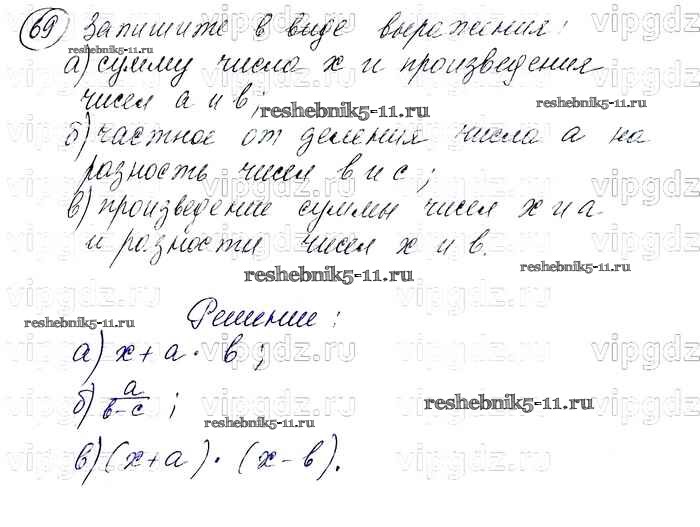 69 Запишите в виде выражения:
а) сумму числа х и произведения
чисел а и в;
б) частное от деления числа а на
разность чисел в и с;
в) произведение суммы чисел х и а
и разности чисел х и в.
Решение:
а) х + а · в;
б) а/(в-с);
в) (х+а) · (х-в).
reshebnik5-11.ru
reshebnik5-11.ru
reshebnik5-11.ru
reshebnik5-11.ru
reshebnik5-11.ru
reshebnik5-11.ru
reshebnik5-11.ru
reshebnik5-11.ru
vipgdz.ru